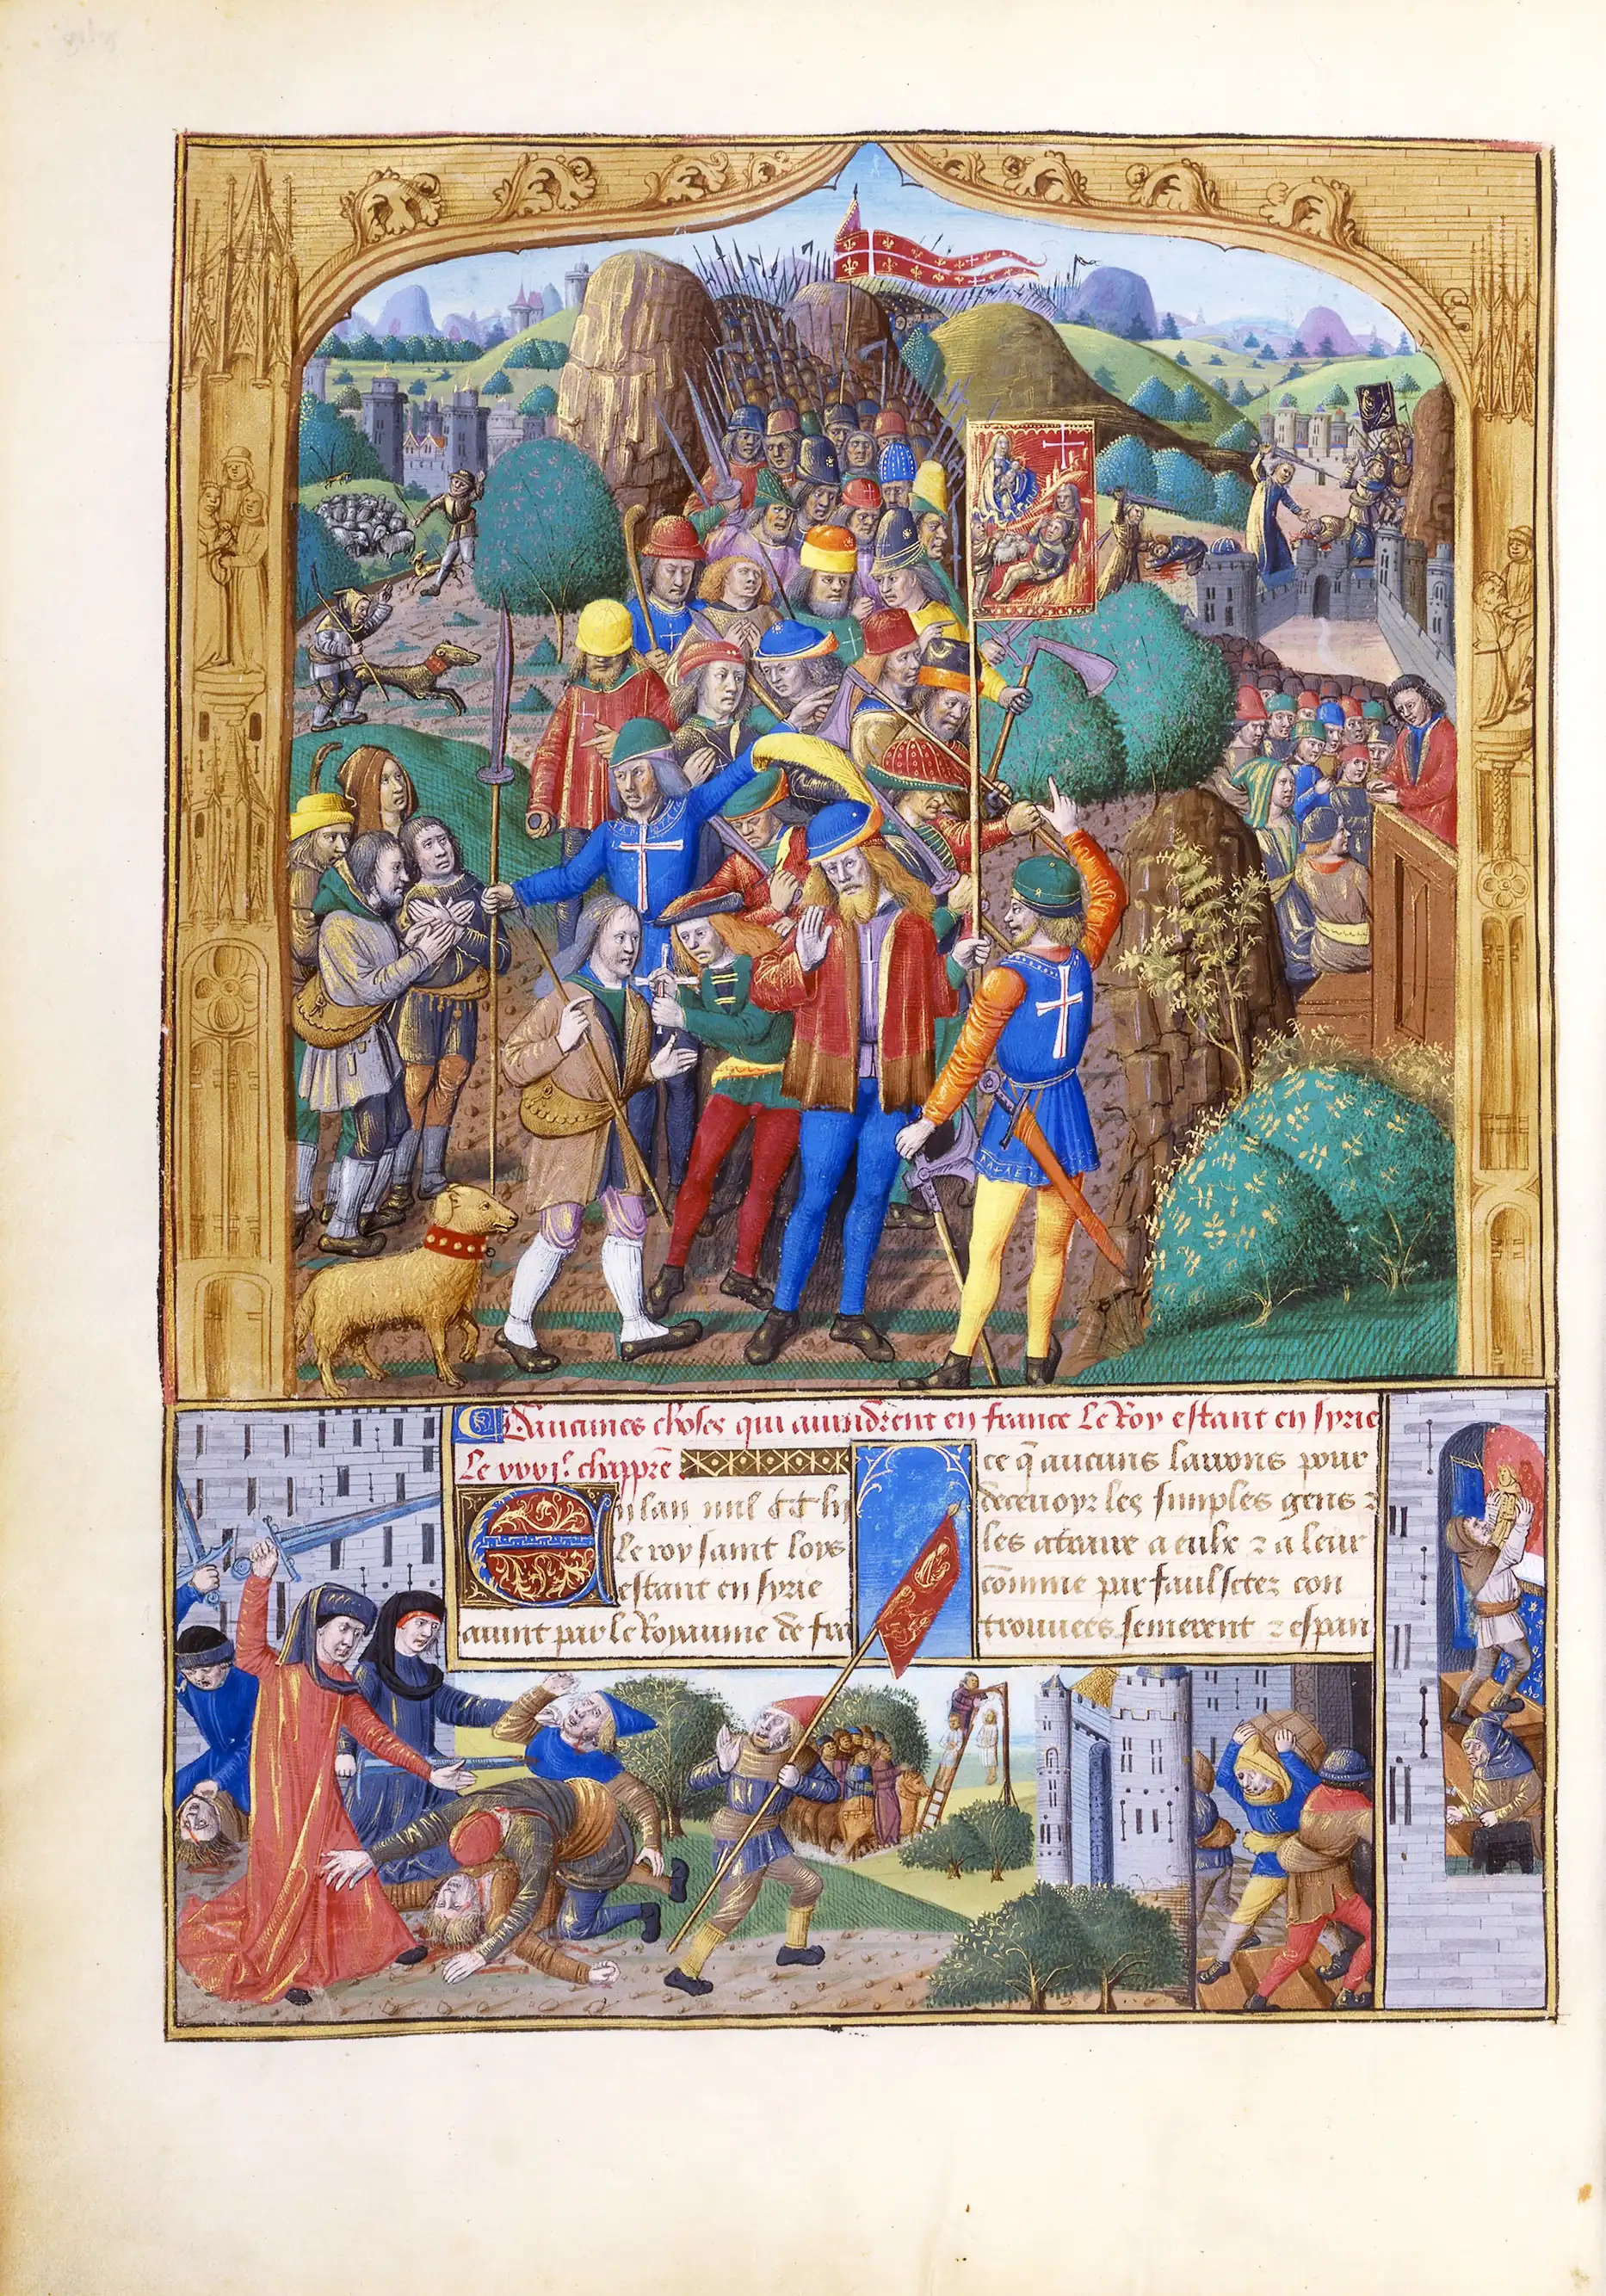 Daucunes choses qui avindrent en france Le Roy estant en syrie
Le xxvi.e chappre
En lan mil CC li
le roy saint loys
estant en syrie
avint par le Royaume de fra
ce q̃ aucuns larrons pour
decevoyr les simples gens ⁊
les atraire a eulx ⁊ a leur
cõmune par faulsetez con
trouvees semerent ⁊ espan